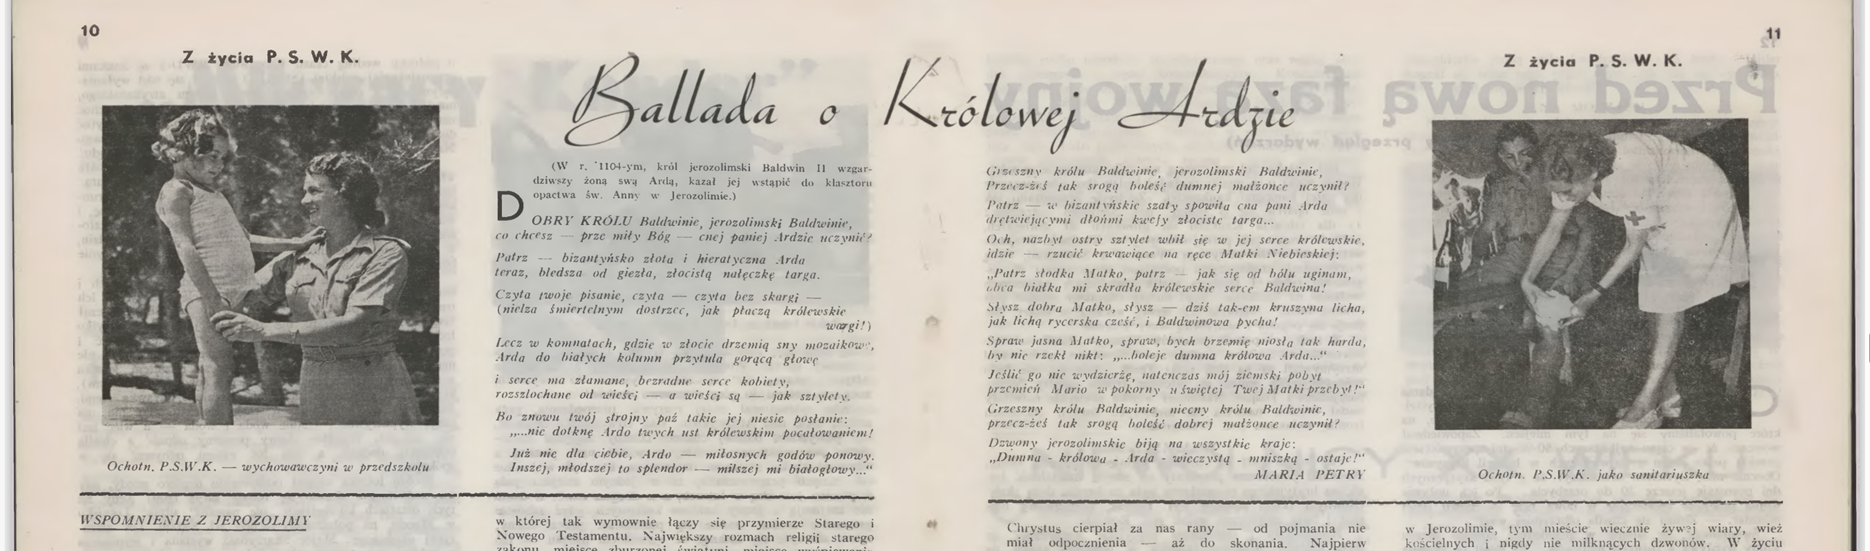 10
Z życia P. S. W. K.
Ochotn. P.S.W.K. — wychowawczyni w przedszkolu
Ballada o Królowej Ardzie
(W r. 1104-ym, król jerozolimski Baldwin II wzgar-
dziwszy żoną swą Ardą, kazał jej wstąpić do klasztoru
opactwa św. Anny w Jerozolimie.)
DOBRY KRÓLU Baldwinie, jerozolimski Baldwinie,
co chcesz — prze miły Bóg — cnej paniej Ardzie uczynić?
Patrz — bizantyńsko złota i hieratyczna Arda
teraz, bledsza od giezła, złocistą nałęczkę targa.
Czyta twoje pisanie, czyta — czyta bez skargi —
(nielza śmiertelnym dostrzec, jak płaczą królewskie
wargi!)
Lecz w komnatach, gdzie w złocie drzemią sny mozaikowe,
Arda do białych kolumn przytula gorącą głowę
i serce ma złamane, bezradne serce kobiety,
rozszlochane od wieści — a wieści są — jak sztylety.
Bo znowu twój strojny paź takie jej niesie posłanie:
„...nie dotknę Ardo twych ust królewskim pocałowaniem!
Już nie dla ciebie, Ardo — miłosnych godów ponowy.
Inszej, młodszej to splendor — milszej mi białogłowy...“
Grzeszny królu Baldwinie, jerozolimski Baldwinie,
Przecz-żeś tak srogą boleść dumnej małżonce uczynił?
Patrz — w bizantyńskie szaty spowita cna pani Arda
drętwiejącymi dłońmi kwefy złociste targa...
Och, nazbyt ostry sztylet wbił się w jej serce królewskie,
idzie — rzucić krwawiące na ręce Matki Niebieskiej:
„Patrz słodka Matko, patrz — jak się od bólu uginam,
obca białka mi skradła królewskie serce Baldwina!
Słysz dobra Matko, słysz — dziś tak-em kruszyna licha,
jak lichą rycerska cześć, i Baldwinowa pycha!
Spraw jasna Matko, spraw, bych brzemię niosła tak harda,
by nie rzekł nikt: „...boleje dumna królowa Arda...“
Jeślić go nie wydzierżę, natenczas mój ziemski pobyt
przemień Mario w pokorny u świętej Twej Matki przebyt!“
Grzeszny królu Baldwinie, niecny królu Baldwinie,
przecz-żeś tak srogą boleść dobrej małżonce uczynił?
Dzwony jerozolimskie biją na wszystkie kraje:
„Dumna - królowa - Arda - wieczystą - mniszką - ostaje!“
MARIA PETRY
11
Z życia P. S. W. K.
Ochotn. P.S.W.K. jako sanitariuszka
WSPOMNIENIE Z JEROZOLIMY
w której tak wymownie łączy się przymierze Starego i
Nowego Testamentu. Największy rozmach religii starego
Chrystus cierpiał za nas rany — od pojmania nie
miał odpocznienia — aż do skonania. Najpierw
w Jerozolimie, tym mieście wiecznie żywej wiary, wież
kościelnych i nigdy nie milknących dzwonów. W życiu